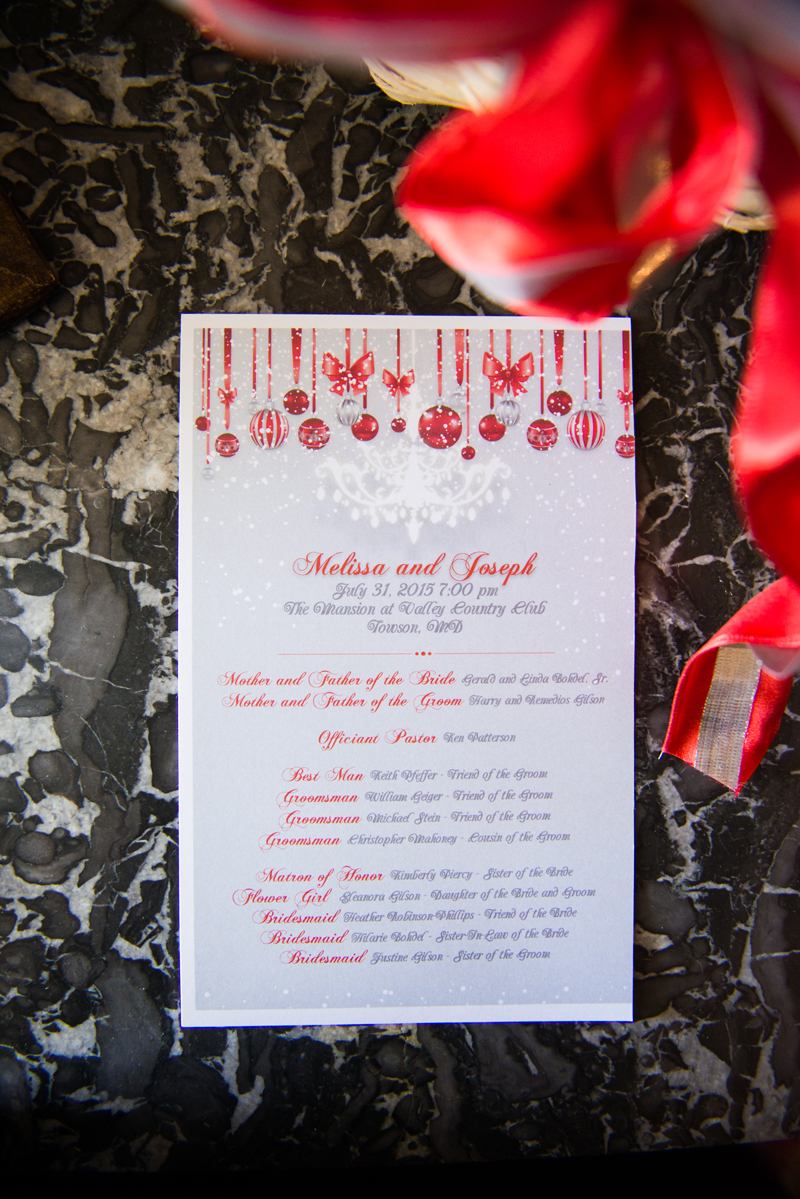 Melissa and Joseph
July 31, 2015 7:00 pm
The Mansion at Valley Country Club
Towson, MD
Mother and Father of the Bride Gerald and Linda Bohdel, Sr.
Mother and Father of the Groom Harry and Remedios Gilson
Officiant Pastor Ken Patterson
Best Man Keith Pfeffer - Friend of the Groom
Groomsman William Geiger - Friend of the Groom
Groomsman Michael Stein - Friend of the Groom
Groomsman Christopher Mahoney - Cousin of the Groom
Matron of Honor Kimberly Piercy - Sister of the Bride
Flower Girl Eleanora Gilson - Daughter of the Bride and Groom
Bridesmaid Heather Robinson-Phillips - Friend of the Bride
Bridesmaid Hilarie Bohdel - Sister-In-Law of the Bride
Bridesmaid Justine Gilson - Sister of the Groom